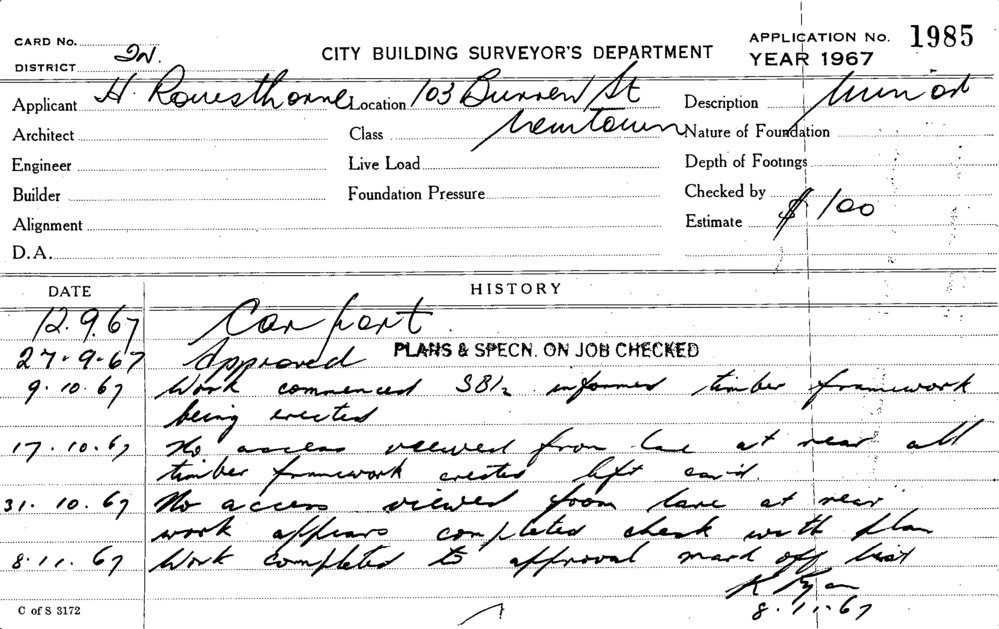 CARD No.
DISTRICT
CITY BUILDING SURVEYOR'S DEPARTMENT
APPLICATION No. 1985
YEAR 1967
Applicant H. Rowesthorne Location 103 Burren St Description Minor
Architect Class Newtown Nature of Foundation
Engineer Live Load Depth of Footings
Builder Foundation Pressure Checked by
Alignment Estimate $ 100
D.A.
DATE HISTORY
12.9.67 Car port
27.9.67 Approved PLANS & SPECN. ON JOB CHECKED
9.10.67 Work commenced informed timber framework
being erected
17.10.67 No access viewed from lane at rear all
timber framework erected left card
31.10.67 No access viewed from lane at rear
work appears completed check with plan
8.11.67 Work completed to approval mark off list
K Ryan
8.11.67
C of S 3172